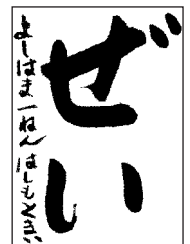 ぜい
よしはま一ねん はしもと